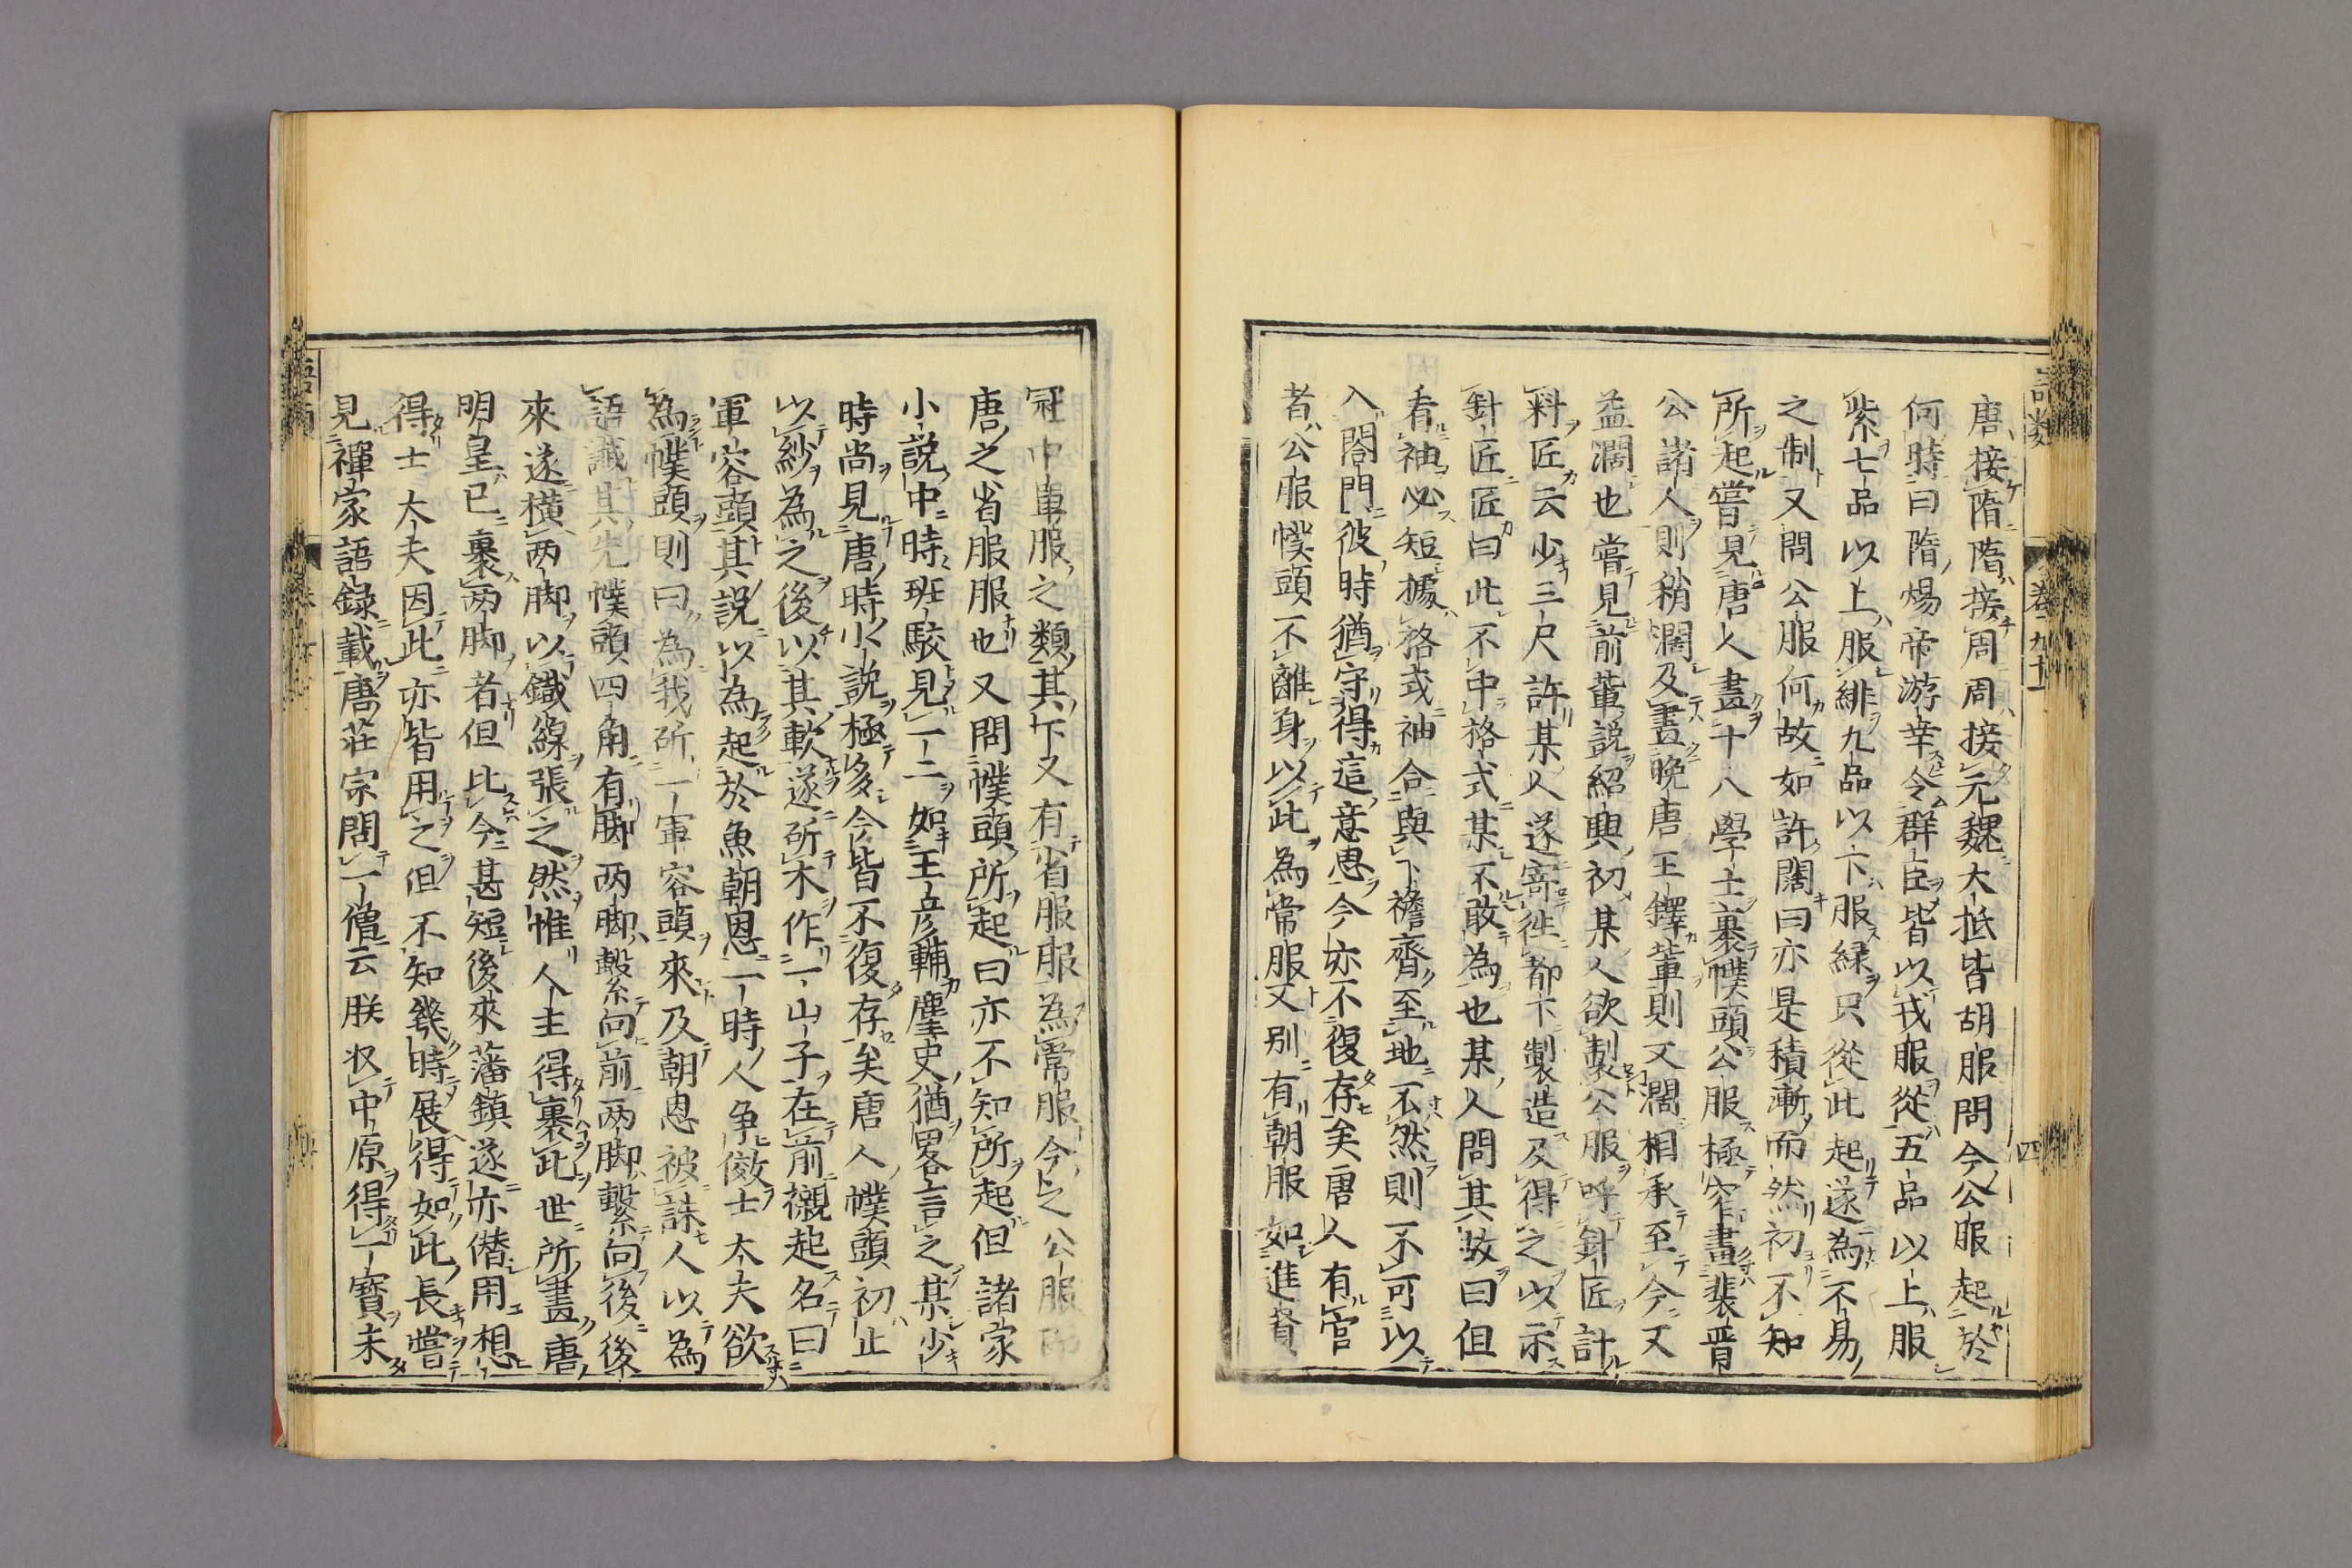 語類 卷九十一 四
唐接隋隋接周周接元魏大抵皆胡服問今公服起於
何時曰隋煬帝游幸令群臣皆以戎服從五品以上服
紫七品以上服緋九品以下服緑只從此起遂為不易
之制又問公服何故如許闊曰亦是積漸而然初不知
所起嘗見唐人畫十八學士裹幞頭公服極窄畫裴晋
公諸人則稍濶及畫晩唐王鐸輩則又濶相承至今又
益濶也嘗見前輩說紹興初某人欲製公服呼針匠計
料匠云少三尺許某人遂寄徃都下製造及得之以示
針匠匠曰此不中格式某不敢為也某人問其故曰但
看袖必短據格式袖合與下襜齊至地不然則不可以
入閤門彼時猶守得這意思今亦不復存矣唐人有官
者公服幞頭不離身以此為常服又别有朝服如進賢
冠中單服之類其下又有省服服為常服今之公服即
唐之省服服也又問幞頭所起曰亦不知所起但諸家
小說中時班駁見一二如王彦輔塵史猶畧言之某少
時尚見唐時小說極多今皆不復存矣唐人幞頭初止
以紗為之後以其軟遂斫木作一山子在前襯起名曰
軍容頭其說以為起於魚朝恩一時人争儌士大夫欲
為幞頭則曰為我斫一軍容頭來及朝恩被誅人以為
語讖其先幞頭四角有脚兩脚繫向前兩脚繫向後後
來遂横兩脚以鐵線張之然惟人主得裹此世所畫唐
明皇已裹兩脚者但比今甚短後來藩鎮遂亦僣用想
得士大夫因此亦皆用之但不知幾時展得如此長嘗
見禪家語錄載唐莊宗問一僧云朕收中原得一寶未